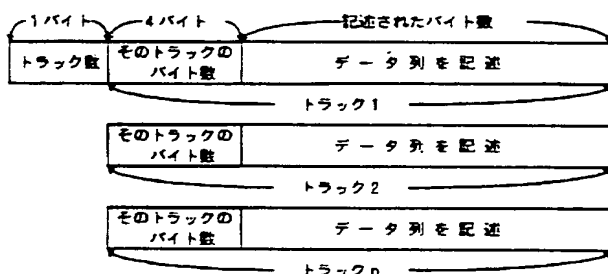 1バイト 4バイト 記述されたバイト数
トラック数 そのトラックのバイト数 データ列を記述
トラック1
そのトラックのバイト数 データ列を記述
トラック2
そのトラックのバイト数 データ列を記述
トラックn